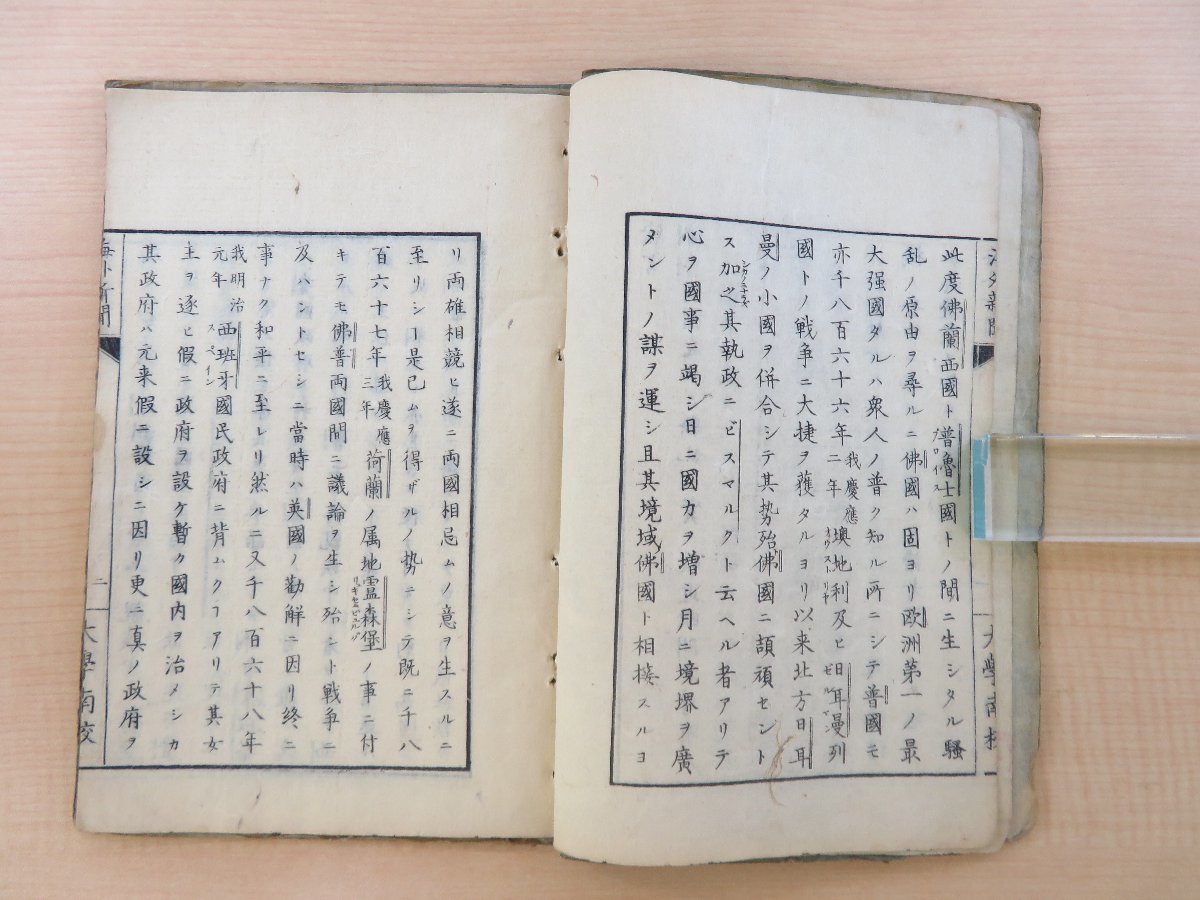 此度佛蘭西國ト普魯士國トノ間ニ生シタル騒
プロイス
乱ノ原由ヲ尋ルニ佛國ハ固ヨリ欧洲第一ノ最
大强國タルハ衆人ノ普ク知ル所ニシテ普國モ
亦千八百六十六年我慶應二年墺地利及ヒ日耳漫列
國トノ戦争ニ大捷ヲ獲タルヨリ以来北方日耳
曼ノ小國ヲ併合シテ其勢殆佛國ニ頡頏セント
ス加之其執政ニビスマルクト云ヘル者アリテ
心ヲ國事ニ竭シ日ニ國力ヲ增シ月ニ境堺ヲ廣
メントノ謀ヲ運シ且其境域佛國ト相接スルヨ
リ両雄相競ヒ遂ニ両國相忌ムノ意ヲ生スルニ
至リシヿ是已ムヲ得ザルノ勢ニシテ既ニ千八
百六十七年我慶應三年荷蘭ノ属地霊森堡ノ事ニ付
キテモ佛普両國間ニ議論ヲ生シ殆ント戦争ニ
及ハントセシニ當時ハ英國ノ勸解ニ因リ終ニ
事ナク和平ニ至レリ然ルニ又千八百六十八年
我明治元年西班牙國民政府ニ背ムクヿアリテ其女
スペイン
主ヲ逐ヒ假ニ政府ヲ設ケ暫ク國内ヲ治メシカ
其政府ハ元来假ニ設シニ因リ更ニ真ノ政府ヲ
海外新聞
二
大學南校